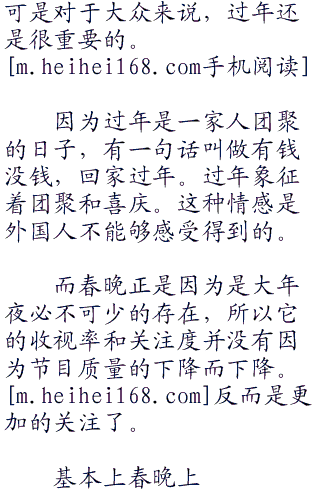 可是对于大众来说，过年还
是很重要的。
[m.heihei168.com手机阅读]
因为过年是一家人团聚
的日子，有一句话叫做有钱
没钱，回家过年。过年象征
着团聚和喜庆。这种情感是
外国人不能够感受得到的。
而春晚正是因为是大年
夜必不可少的存在，所以它
的收视率和关注度并没有因
为节目质量的下降而下降。
[m.heihei168.com]反而是更
加的关注了。
基本上春晚上